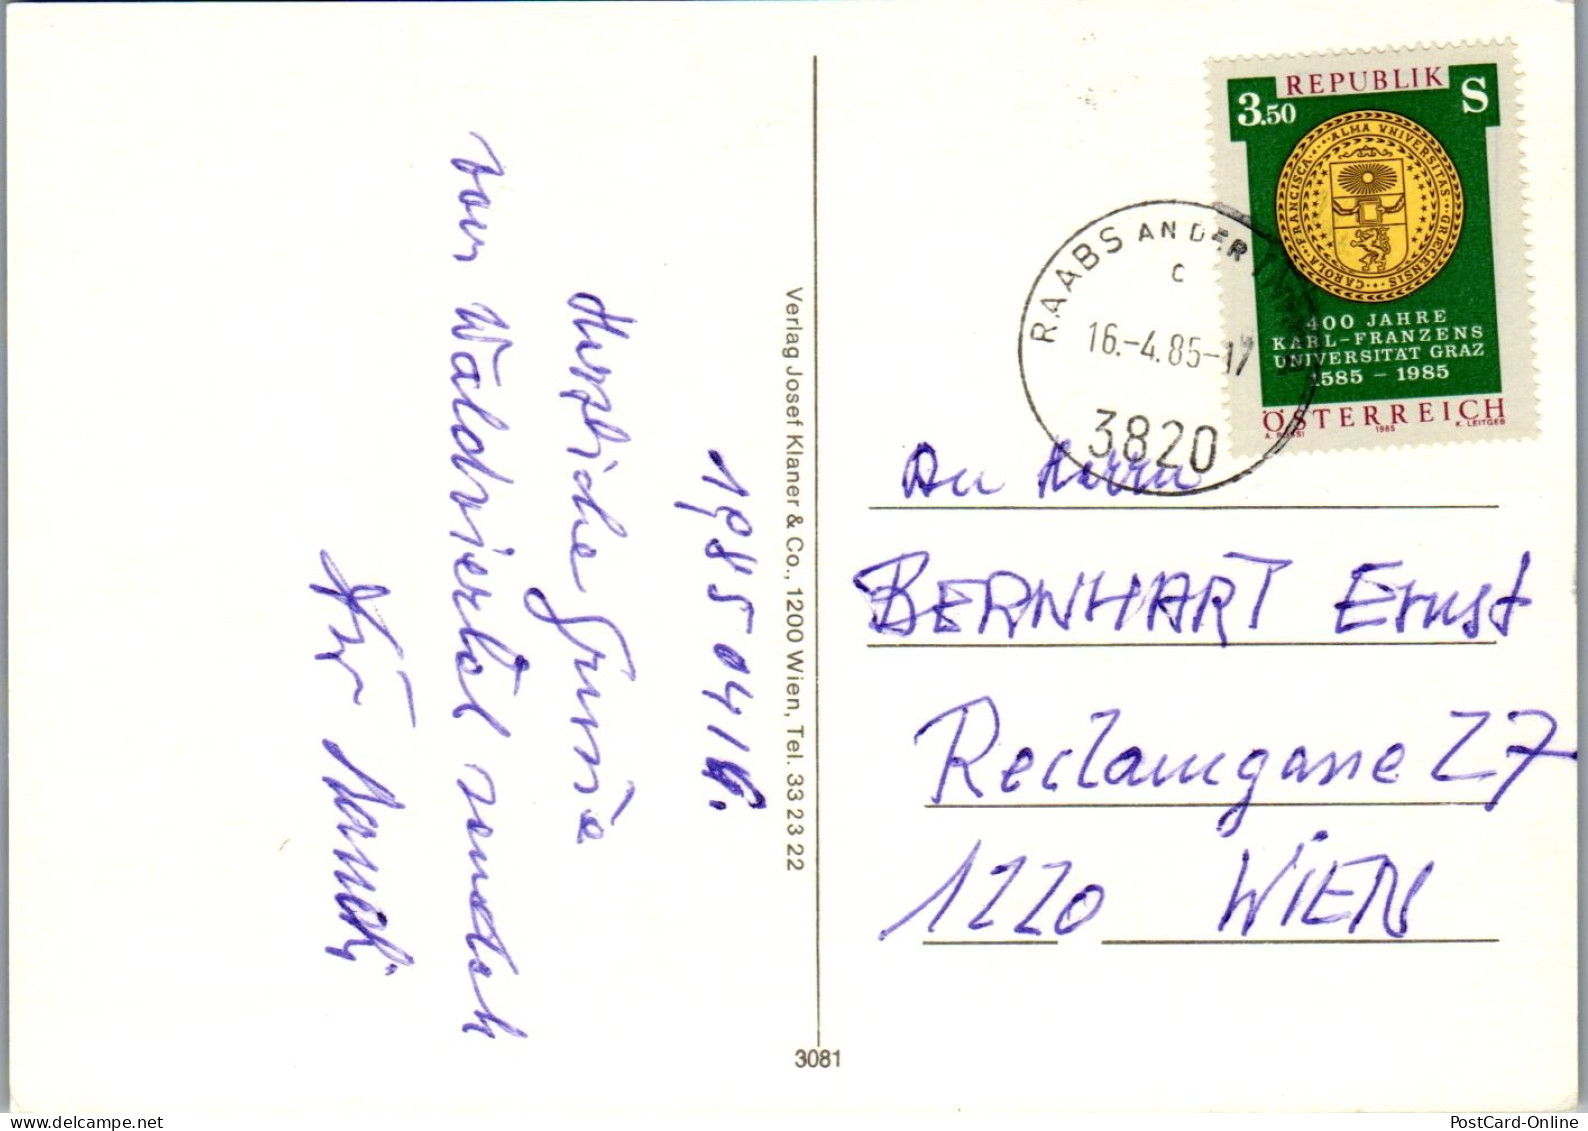 1985 04 16.
Herzliche Grüsse
vom Waldviertel sendet
Verlag Josef Klaner & Co., 1200 Wien, Tel. 33 23 22
3081
REPUBLIK
3.50 S
CAROLA · FRANCISCA · ALMA VNIVERSITAS · GRÆCENSIS
400 JAHRE
KARL-FRANZENS
UNIVERSITÄT GRAZ
1585 - 1985
ÖSTERREICH
1985 K. LEITGEB
RAABS AN DER
c
16.-4.85-17
3820
An Herrn
BERNHART Ernst
Reclamgasse 27
1220 WIEN
PostCard-Online